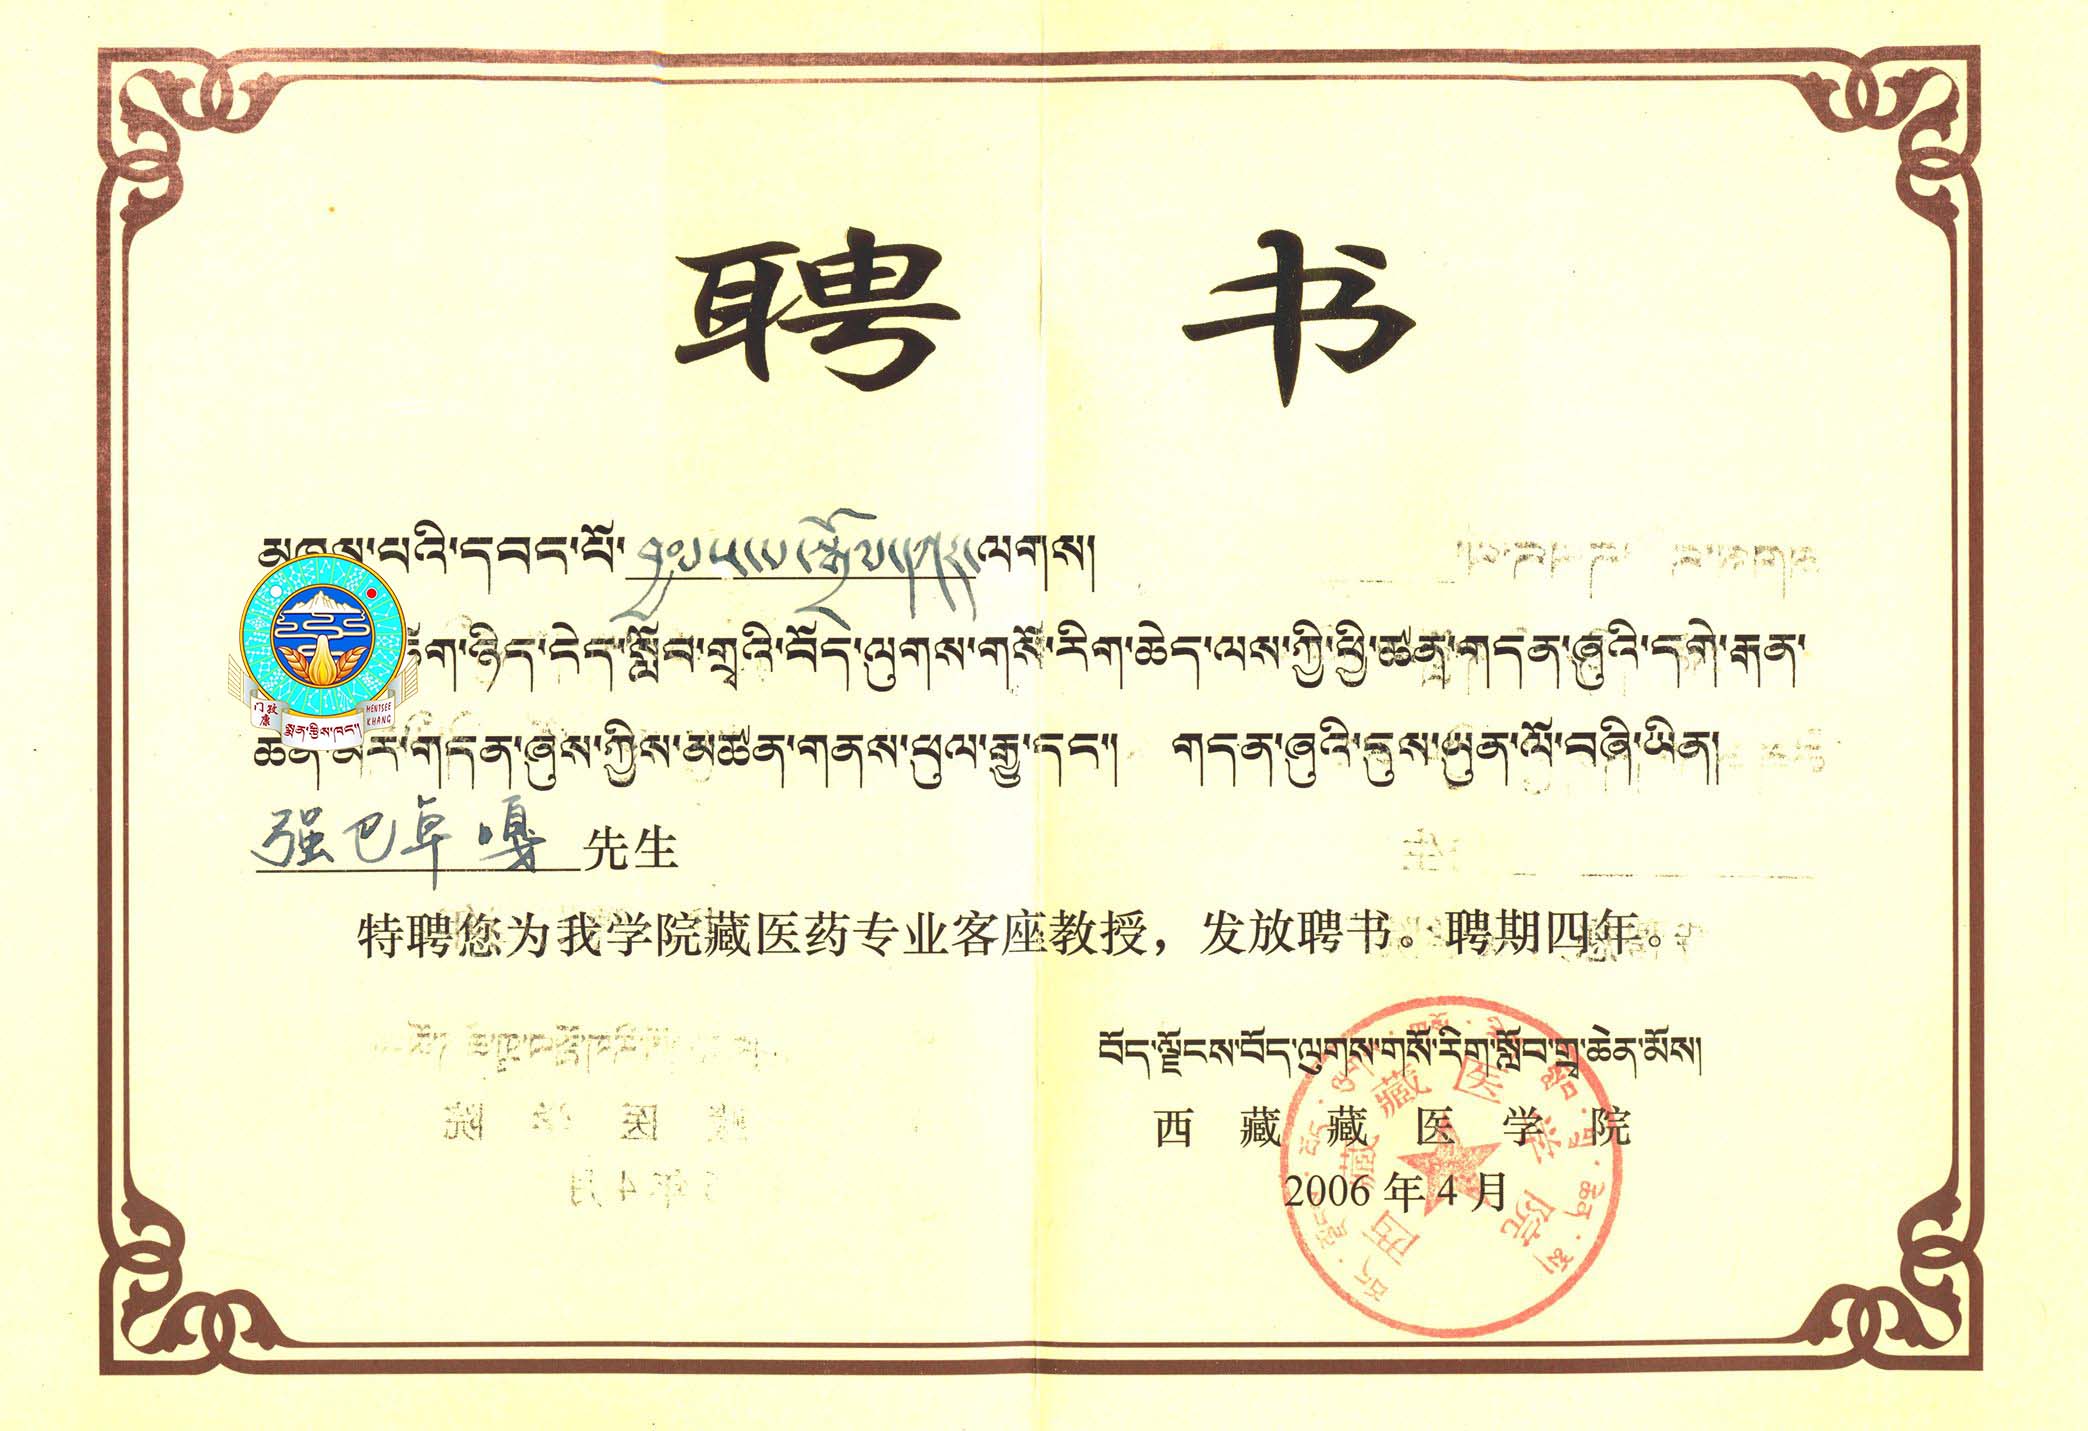 聘 书
མཁས་པའི་དབང་པོ་ བྱམས་པ་སྒྲོལ་དཀར་ལགས།
ཉིད་ངེད་སློབ་གྲྭའི་བོད་ལུགས་གསོ་རིག་ཆེད་ལས་ཀྱི་ཕྱི་ཚན་གདན་ཞུའི་དགེ་རྒན་
ཆེན་མོར་གདན་ཞུས་ཀྱིས་མཚན་གནས་ཕུལ་རྒྱུ་དང་། གདན་ཞུའི་དུས་ཡུན་ལོ་བཞི་ཡིན།
门孜康
MENTSEE KHANG
སྨན་རྩིས་ཁང་།
强巴卓嘎 先生
特聘您为我学院藏医药专业客座教授，发放聘书。聘期四年。
བོད་ལྗོངས་བོད་ལུགས་གསོ་རིག་སློབ་གྲྭ་ཆེན་མོས།
西 藏 藏 医 学 院
2006 年 4 月
西藏藏医学院